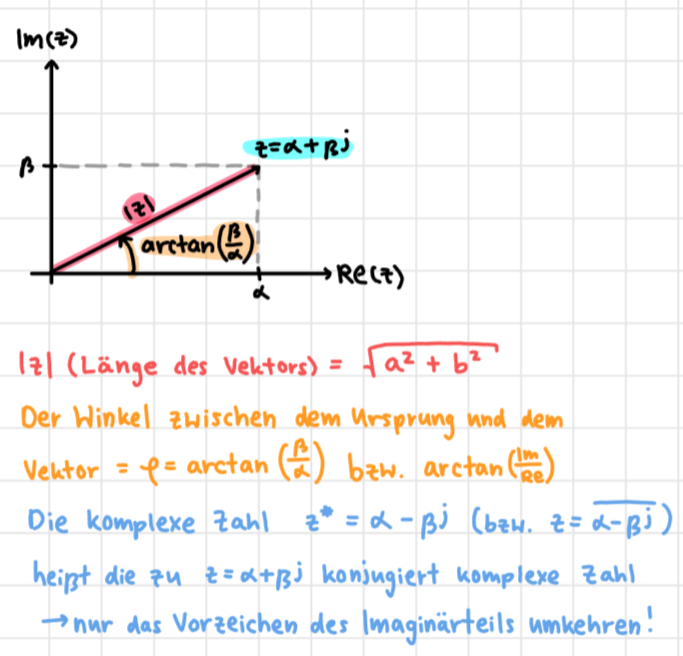 Im(z)
z=α+βj
β
|z|
arctan(β/α)
Re(z)
α
|z| (Länge des Vektors) = √(a² + b²)
Der Winkel zwischen dem Ursprung und dem
Vektor = φ = arctan (β/α) bzw. arctan(Im/Re)
Die komplexe Zahl z* = α - βj (bzw. z = \overline{α-βj})
heißt die zu z=α+βj konjugiert komplexe Zahl
→ nur das Vorzeichen des Imaginärteils umkehren!